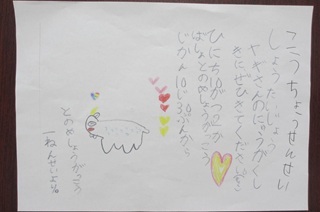 こうちょうせんせい
しょうたいじょう
ヤギさんのにゅうがくし
きにぜひきてください
ひにち10がつ2か
ばしょとのしょうがっこう
じかん10じ30ぷんから
とのしょうがっこう
一ねんせいより